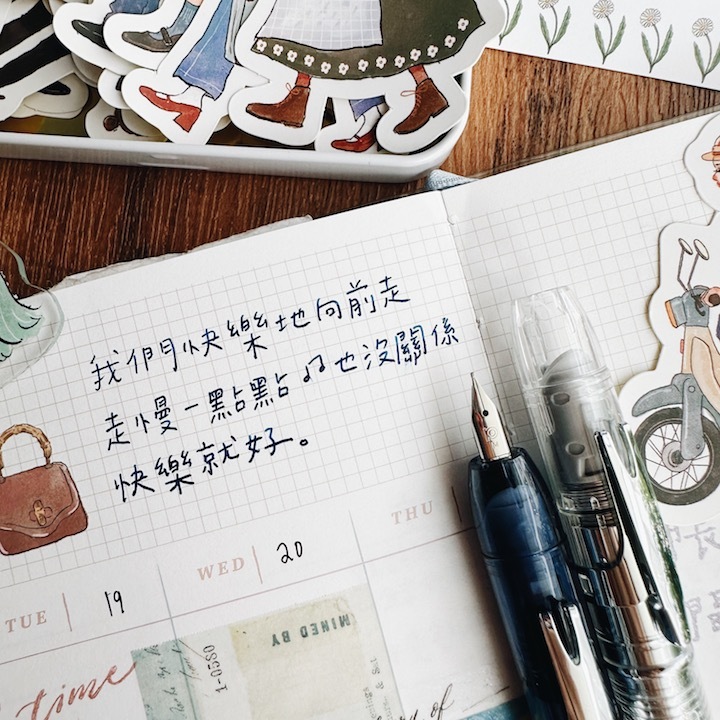 我們快樂地向前走
走慢一點點♫也沒關係
快樂就好。
TUE 19
WED 20
THU
MINED BY
1-0580
time